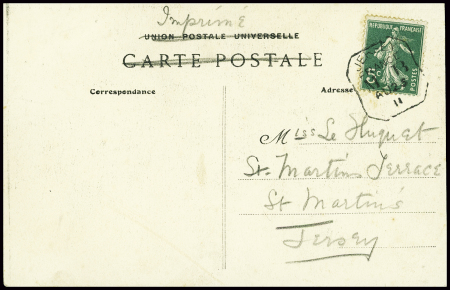 Imprimé
UNION POSTALE UNIVERSELLE
CARTE POSTALE
Correspondance
Adresse
REPUBLIQUE FRANÇAISE
5c
POSTES
JE
AU
11
Miss Le Huquet
St. Martins Terrace
St Martin's
Jersey